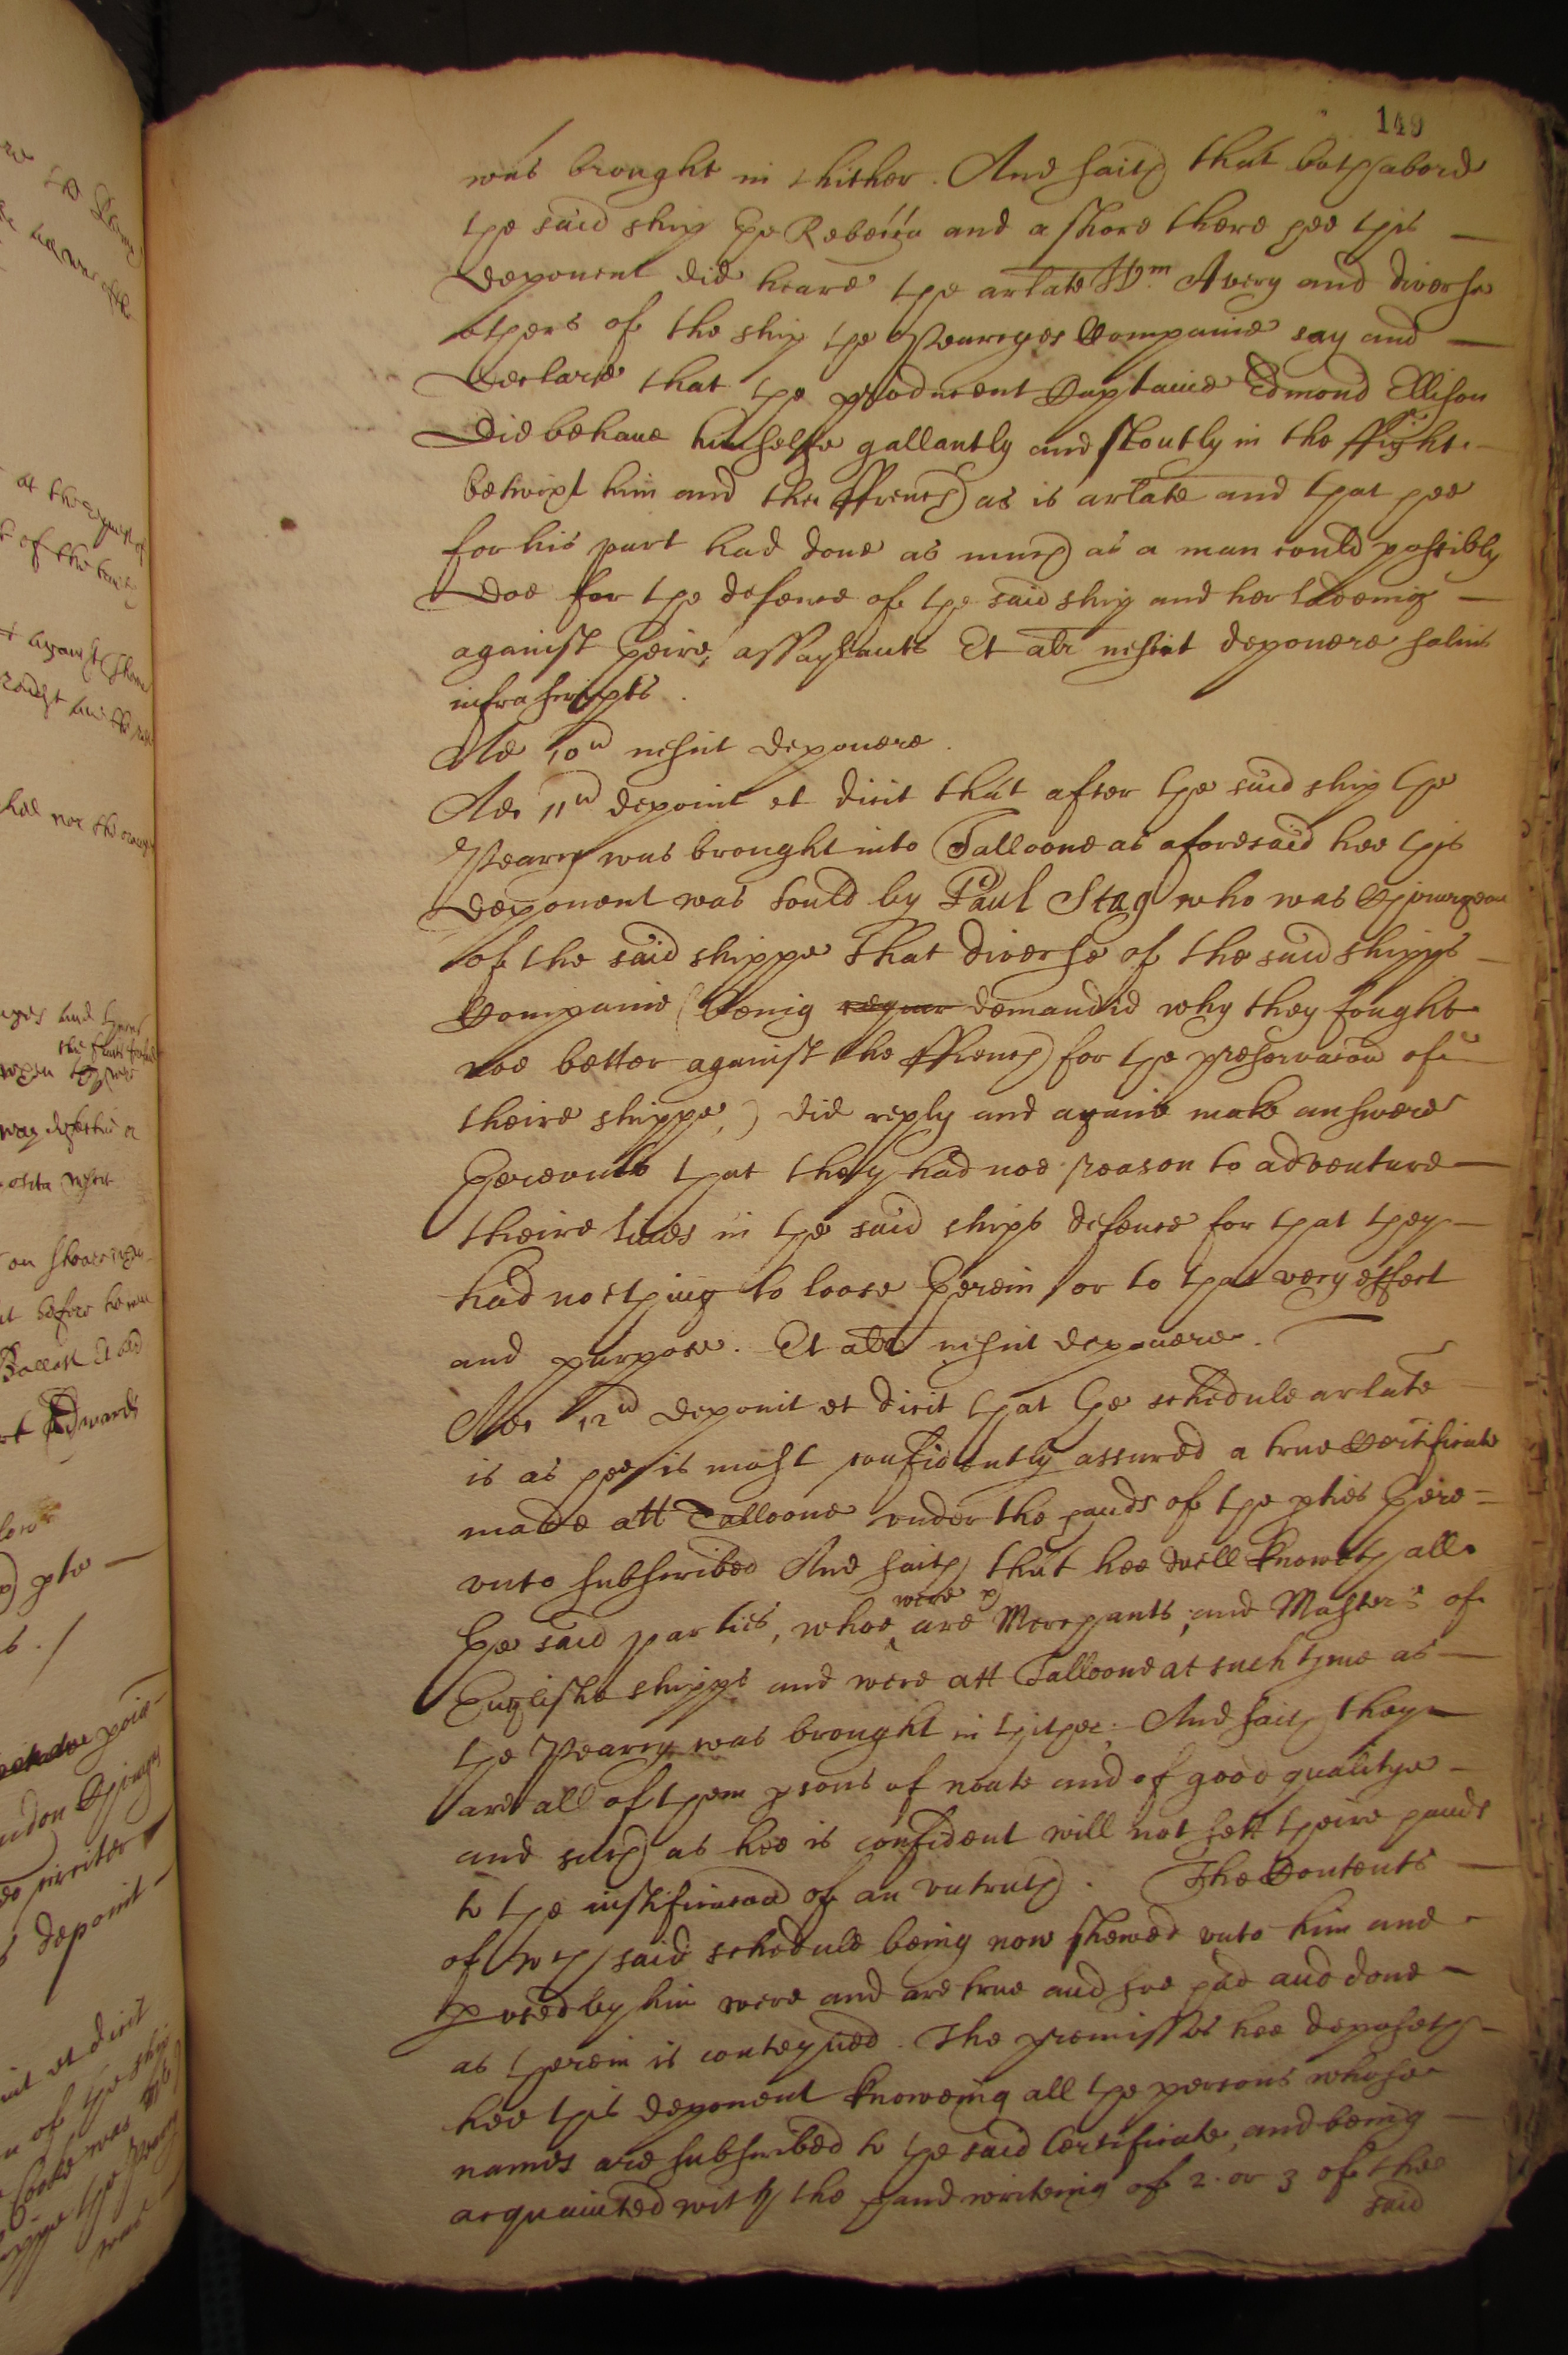 149
was brought in thither. And saith that both abord
the said ship the Rebecca and a shore there hee this
deponent did heare the arlate Wm. Avery and diverse
others of the ship the Pearcyes Companie say and
declare that the producent Captaine Edmond Ellison
did behave himselfe gallantly and stoutly in the ffight
betwixt him and the ffrench as is arlate and that hee
for his part had done as much as a man could possibly
doe for the defence of the said ship and her ladeing
against theire assaylants Et alr nescit deponere salvis
infrascriptis.
Ad 10um nescit deponere.
Ad 11um deponit et dicit that after the said ship the
Pearcy was brought into Talloone as aforesaid hee this
deponent was tould by Paul Stag who was Chirurgeon
of the said shippe That diverse of the said shipps
Companie (being demandid why they fought
noe better against the ffrench for the preservacon of
theire shippe,) did reply and againe make answere
therevnto that they had noe reason to adventure
theire lives in the said ships defence for that they
had nothing to loose therein, or to that very effect
and purpose. Et alr nescit deponere.
Ad 12um deponit et dicit that the schedule arlate
is as hee is most confidently assured a true Certificate
made att Talloone vnder the hands of the pties there=
vnto subscribed And saith that hee well knoweth all
the said parties, whoe were are Merchants, and Masters of
Englishe shipps and were att Talloone at such tyme as
the Pearcy was brought in thither. And saith they
are all of them psons of noate and of good qualitye
and such as hee is confident will not sett theire hands
to the iustificacon of an vntruth. The Contents
of wch said schedule being now shewed vnto him and
pvsed by him were and are true and soe had and done
as therein is conteyned. The premisses hee deposeth
hee this deponent knoweing all the persons whose
names are subscribed to the said Certificate, and being
acquainted with the handwriteing of 2. or 3 of the
said